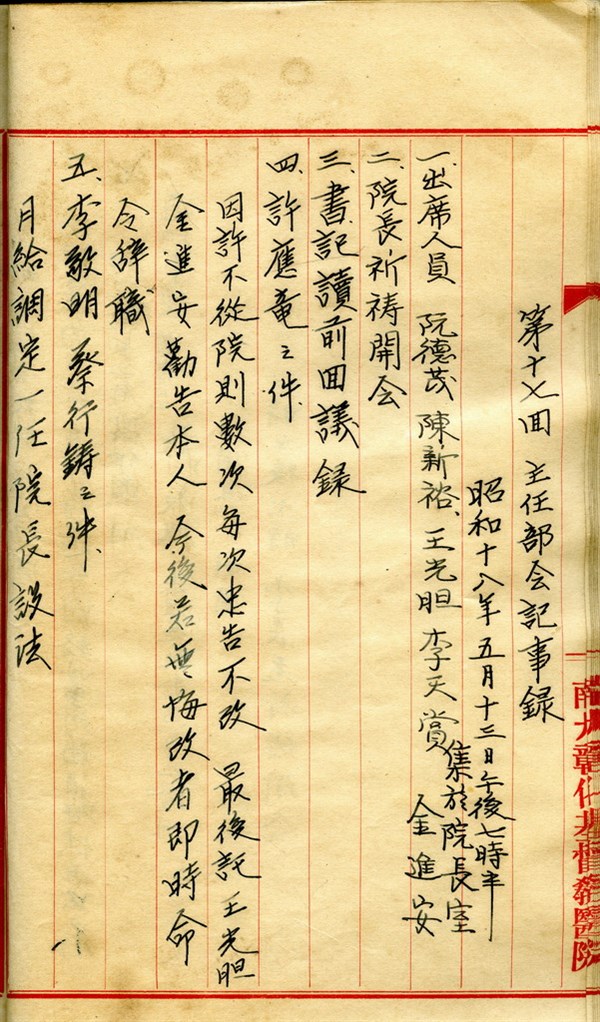 第十七回 主任部会記事録
昭和十八年五月十三日午後七時半
集於院長室
一、出席人員 阮德茂 陳新裕、王光胆 李天賞 金進安
二、院長祈祷開会
三、書記讀前回議録
四、許應竜之件
因許不從院則數次每次忠告不改 最後託王光胆
金進安勸告本人 今後若無悔改者即時命
令辞職
五、李敏明 蔡行鋳之件
月給調定一任院長設法
彰化基督教醫院